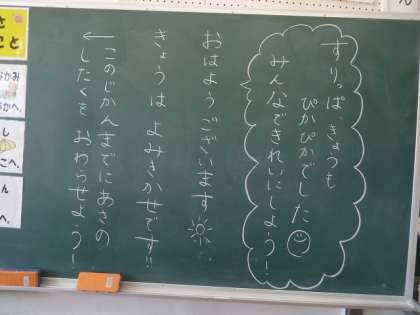 すりっぱ、きょうも
ぴかぴかでした
みんなできれいにしよう!
おはようございます
きょうは よみきかせです!!
このじかんまでにあさの
したくを おわらせよう!